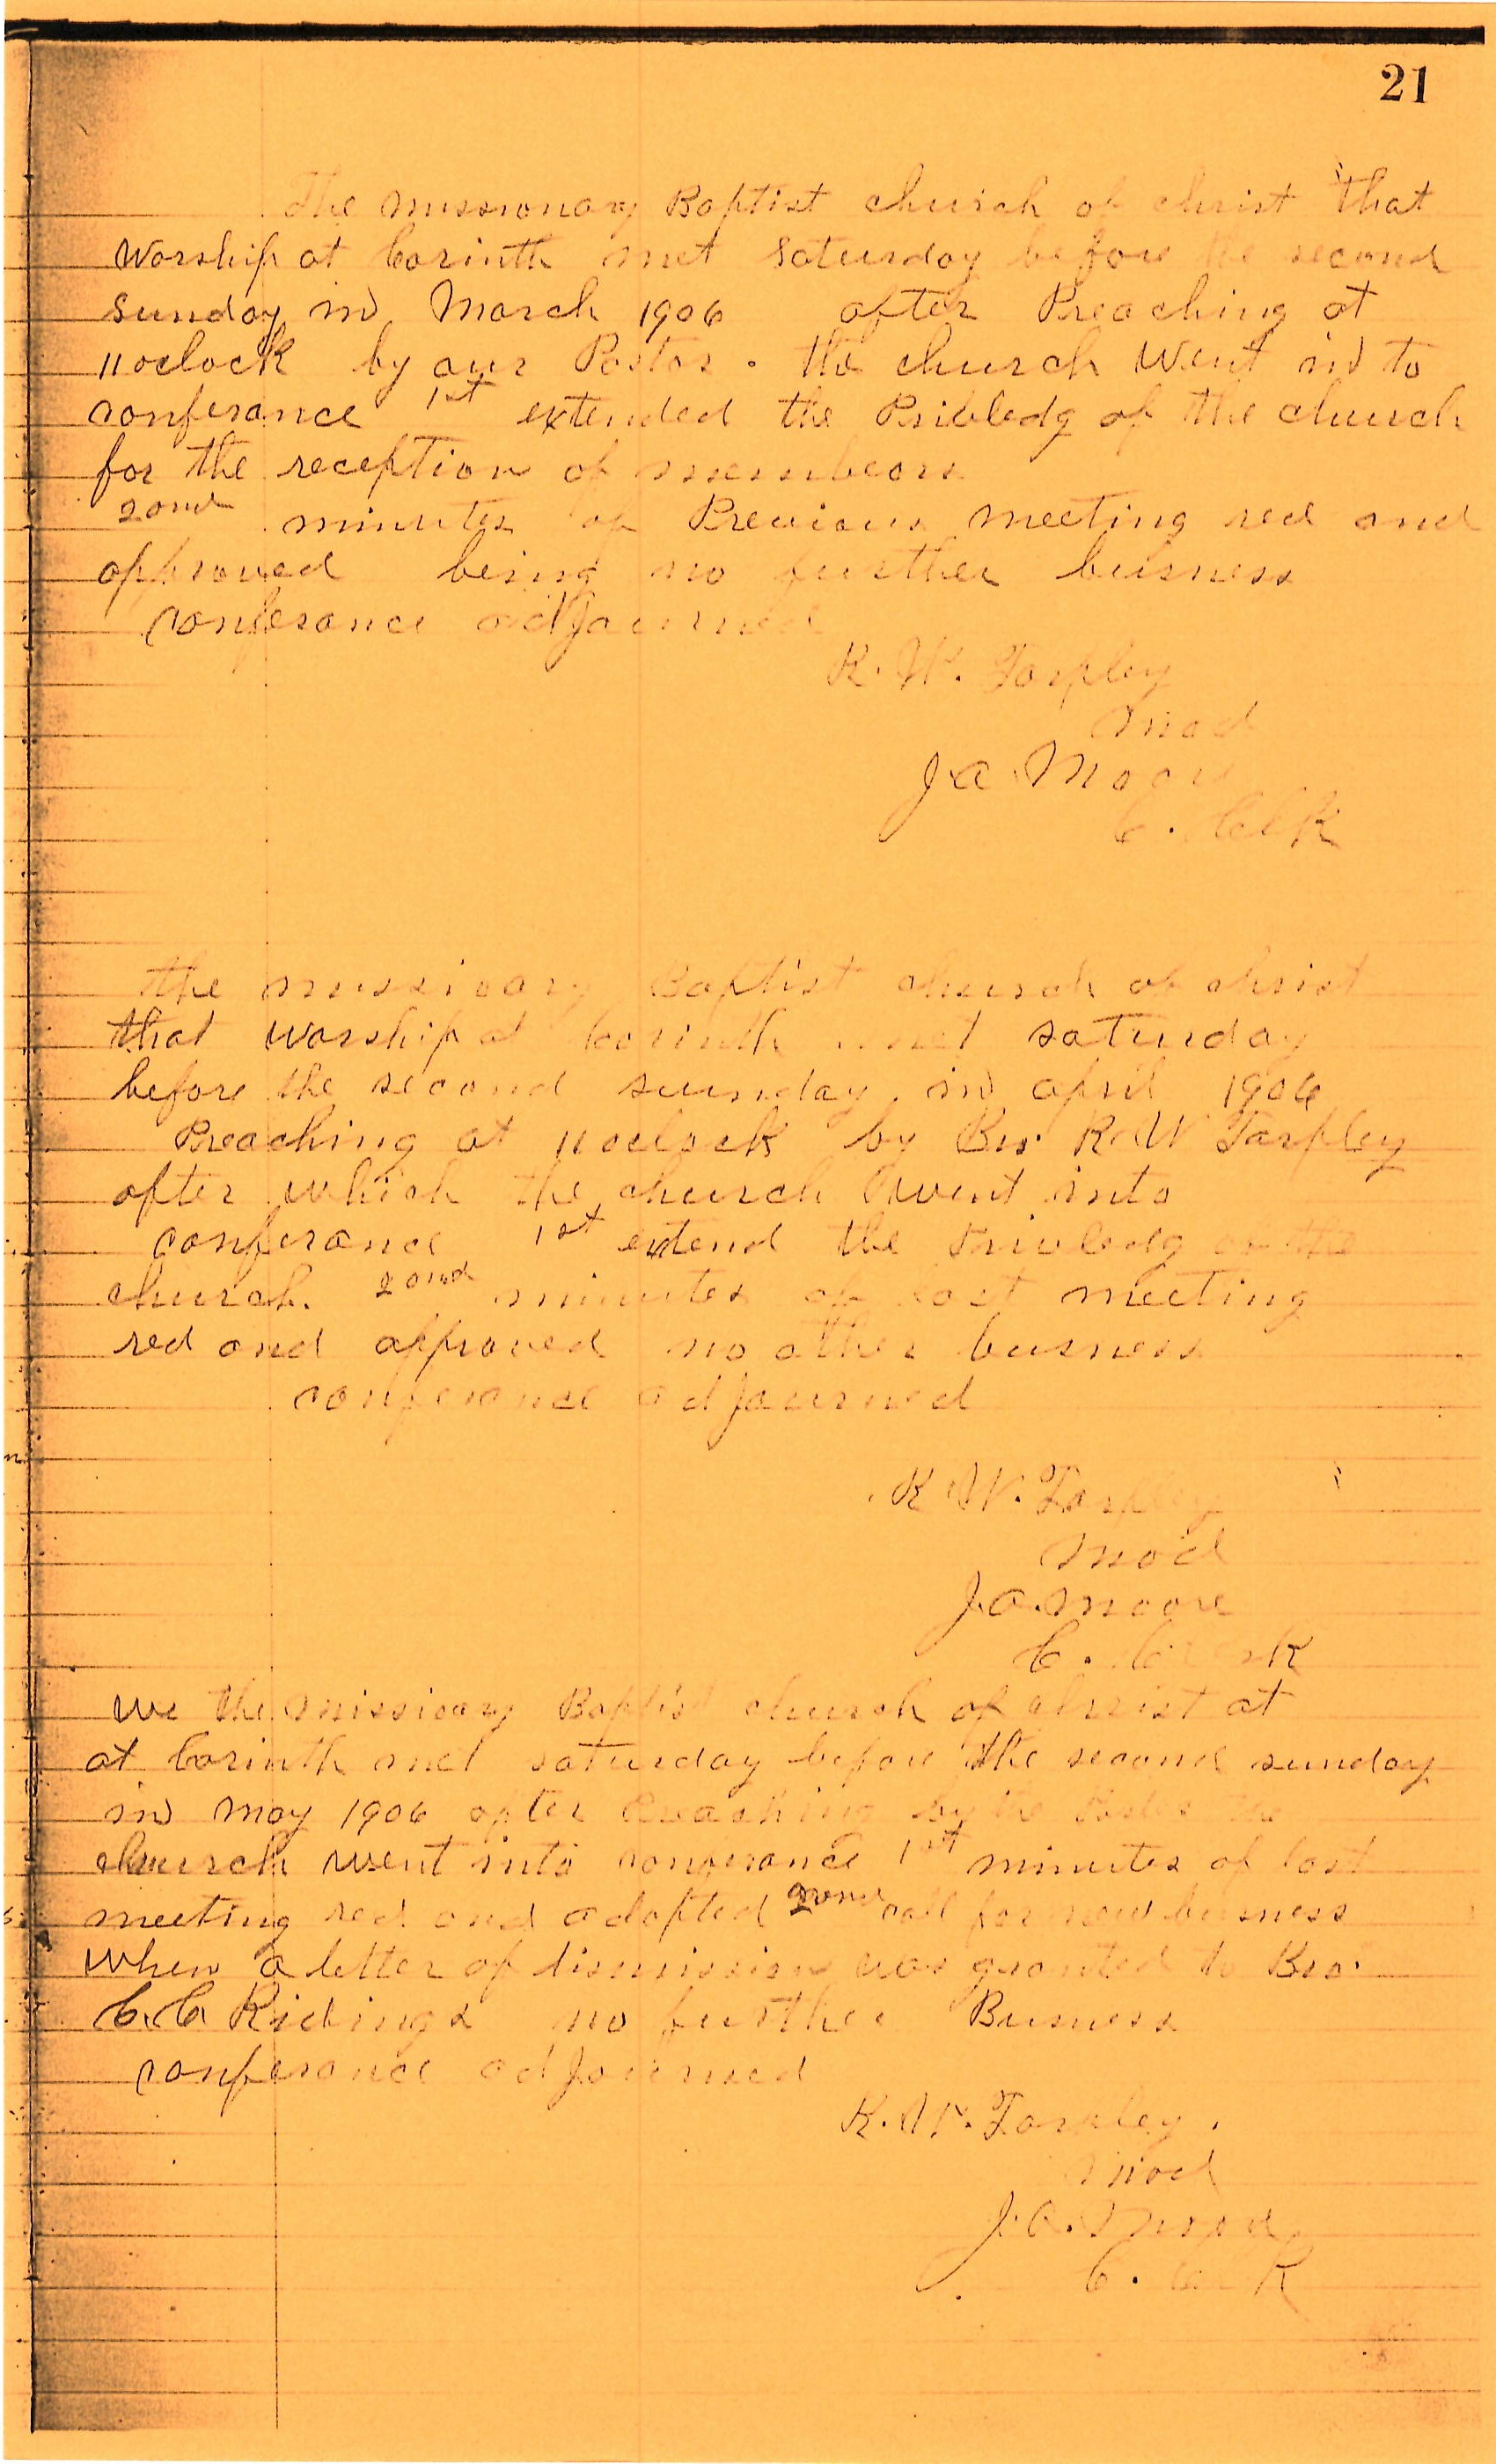 21
The missionary Baptist church of christ that
Worship at Corinth met Saturday before the second
sunday in March 1906 after Preaching at
11 oclock by our Pastor. the church went in to
conferance 1st extended the Pribledg of the church
for the reception of membears
2ond minutes of Previous meeting red and
approved being no further buisness
conferance adjourned
R. W. Tarpley
Mod
J. A. Moore
C. Clk
the missioary Baptist church of christ
that worship at Corinth met saturday
before the second sunday in april 1906
Preaching at 11 oclock by Bro. R. W Tarpley
after which the church went into
conferance 1st extend the Privledg of the
church. 2ond minutes of last meeting
red and approved no other buisness
conferance adjourned
R W. Tarpley
Mod
J. A. Moore
C. Clerk
we the missioary Baptist church of christ at
at Corinth met saturday before the second sunday
in may 1906 after Preaching by the Pastor the
church went into conferance 1st minutes of last
meeting red and adopted 2ond call for new buisness
when a letter of dismission was granted to Bro.
C. C Ridings no further Buisness
conferance adjourned
R. W. Tarpley.
Mod
J. A. Moore
C. Clerk